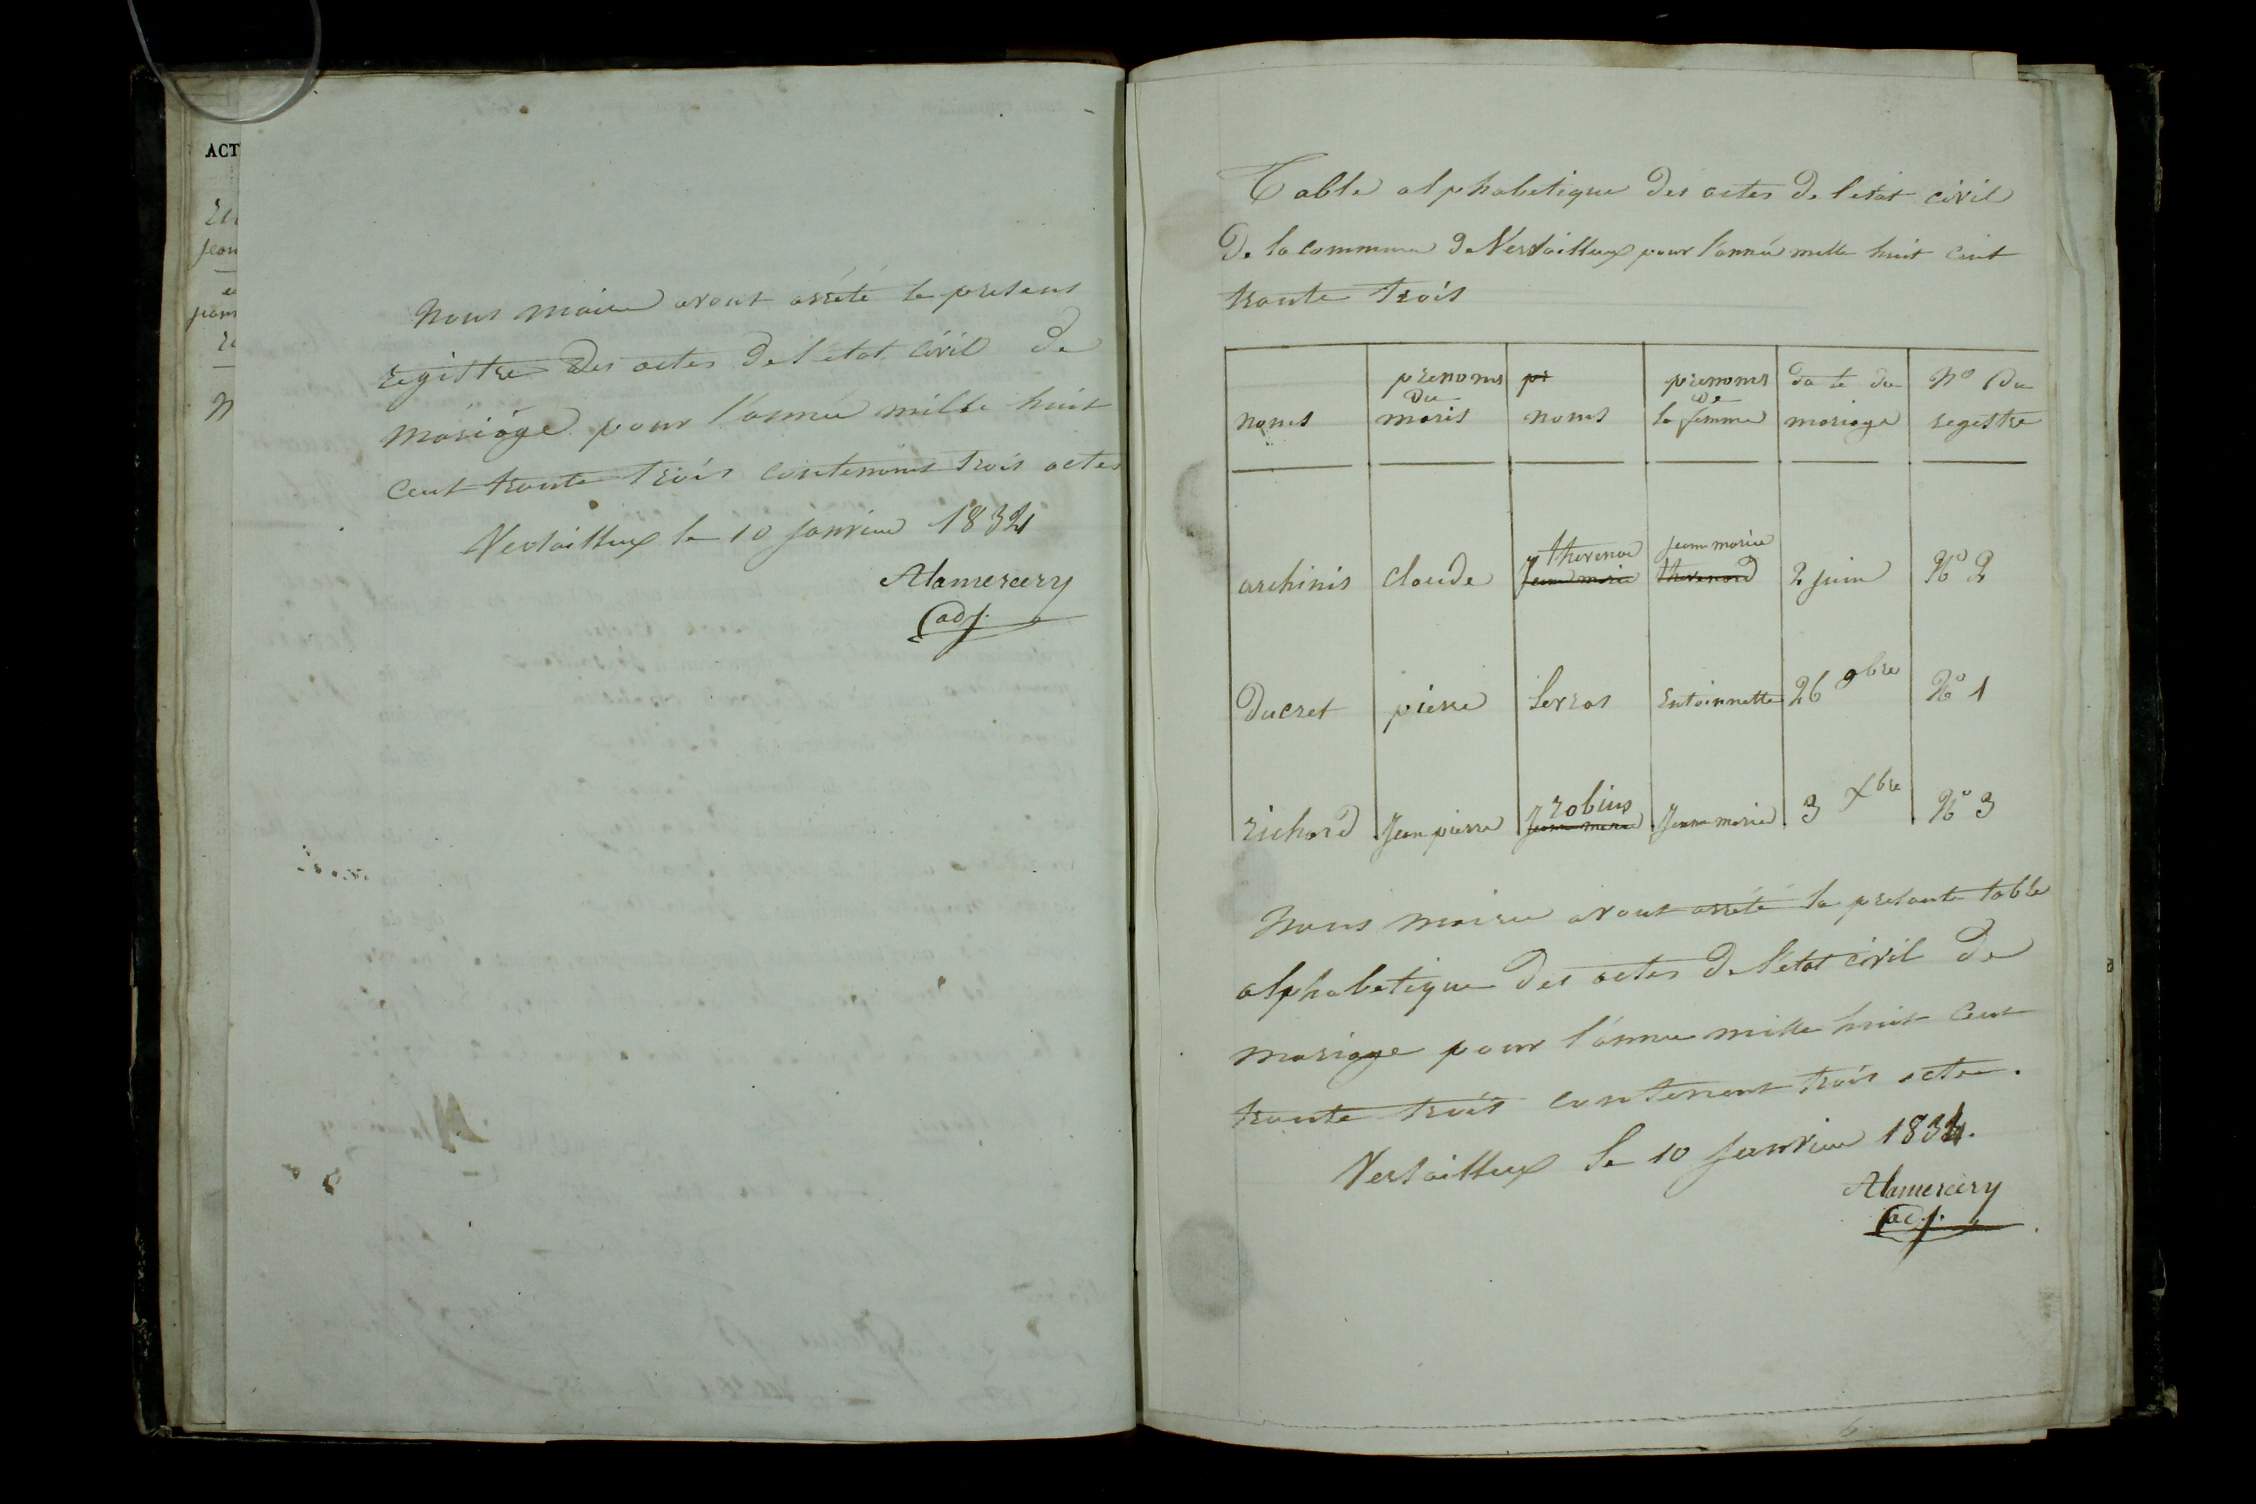 ACT
Nous maire avont arrêté le presens
registre des actes de l'etat civil de
mariage pour l'année mille huit
cent trante trois contenans trois actes
Versailleux le 10 Janvier 1834
Alamercery
adj.
Table alphabetique des actes de l'etat civil
De la commune de Versailleux pour l'année mille huit cent
trante trois
noms | prenoms du maris | pr noms | prenoms de la femme | date du mariage | No du registre
archinis | claude | Jeanne marie thevenon | thevenard jeanne marie | 2 juin | No 2
Ducret | pierre | Serras | Entoinnette | 26 9bre | No 1
richard | Jean pierre | Jeanne marie robins | Jeanne marie | 3 Xbre | No 3
Nous maire avont arrêté la presante table
alphabetique des actes de l'etat civil de
mariage pour l'annee mille huit cent
trante trois contenent trois acte.
Versailleux le 10 Janvier 1834.
Alamercery
adj.